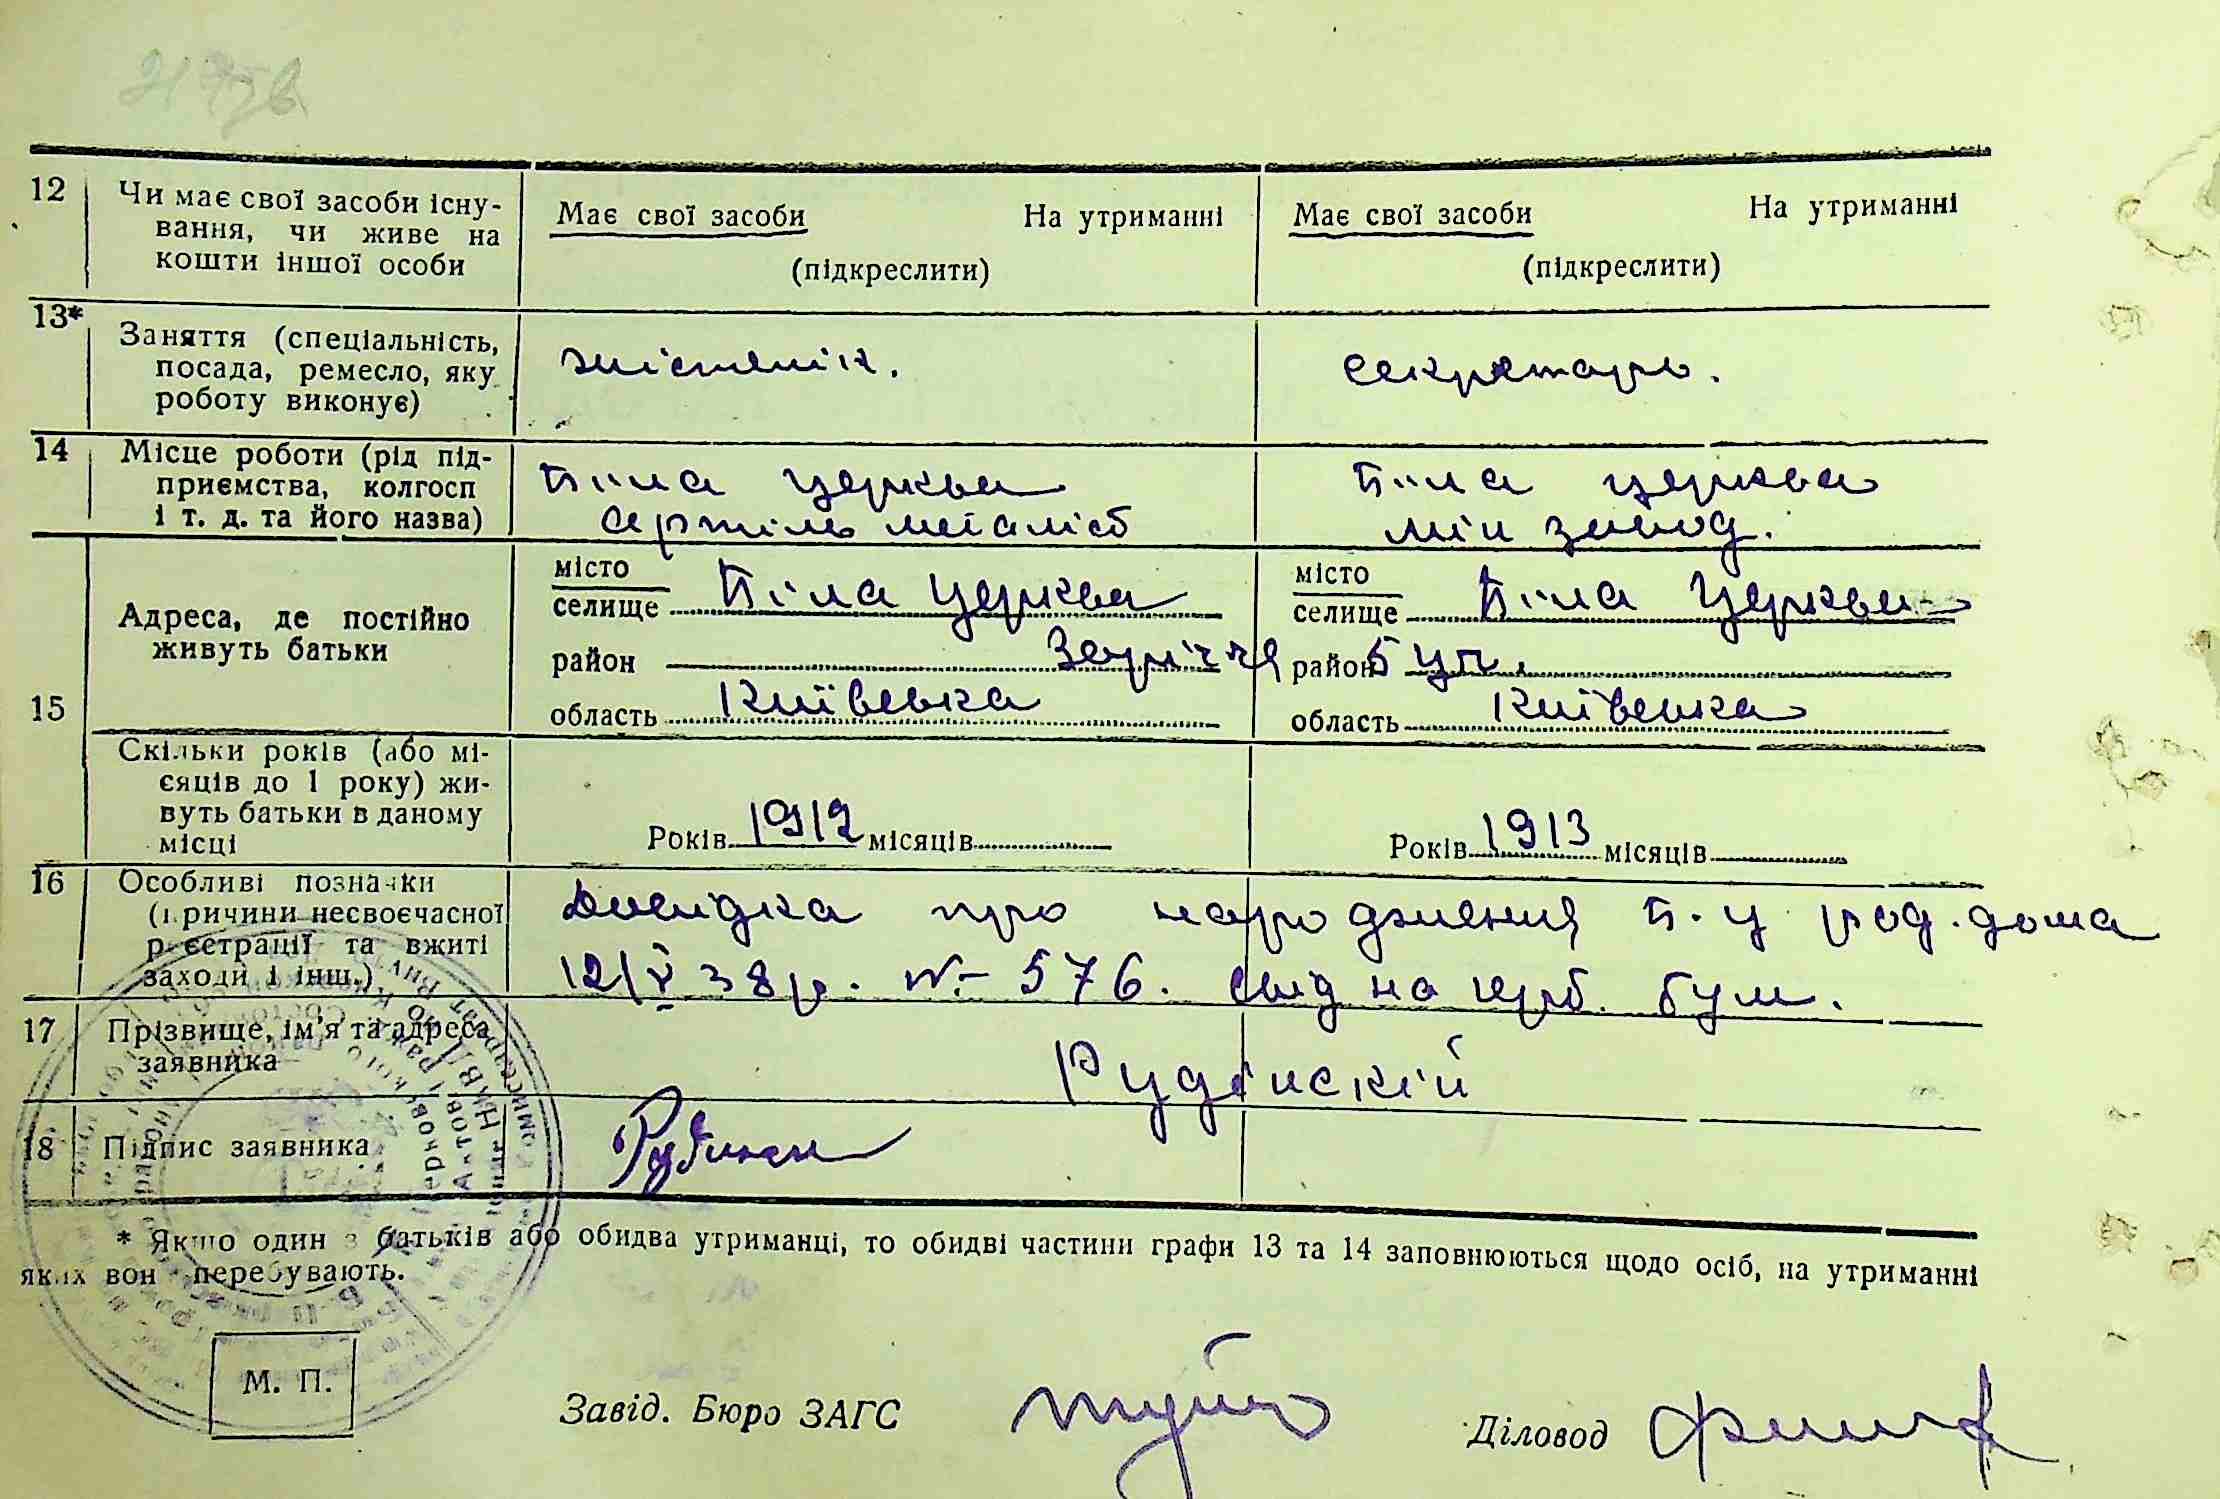 12 Чи має свої засоби існу-
вання, чи живе на
кошти іншої особи
Має свої засоби На утриманні
(підкреслити)
Має свої засоби На утриманні
(підкреслити)
13* Заняття (спеціальність,
посада, ремесло, яку
роботу виконує)
секретарь.
14 Місце роботи (рід під-
приємства, колгосп
і т. д. та його назва)
Біла церква
Артіль металіст
Біла церква
завод.
15
Адреса, де постійно
живуть батьки
місто
селище Біла Церква
район Заріччя
область Київська
місто
селище Біла Церква
район 5
область Київська
Скільки років (або мі-
сяців до 1 року) жи-
вуть батьки в даному
місці
Років 1912 місяців
Років 1913 місяців
16 Особливі позначки
(причини несвоєчасної
реєстрації та вжиті
заходи і інш.)
Довідка про народження Б.Ц род. дома
12/V 38 р. № 576. на герб. бум.
17 Прізвище, ім'я та адреса
заявника
Рудінскій
18 Підпис заявника
* Якщо один з батьків або обидва утриманці, то обидві частини графи 13 та 14 заповнюються щодо осіб, на утриманні
яких вони перебувають.
М. П.
Завід. Бюро ЗАГС
Діловод